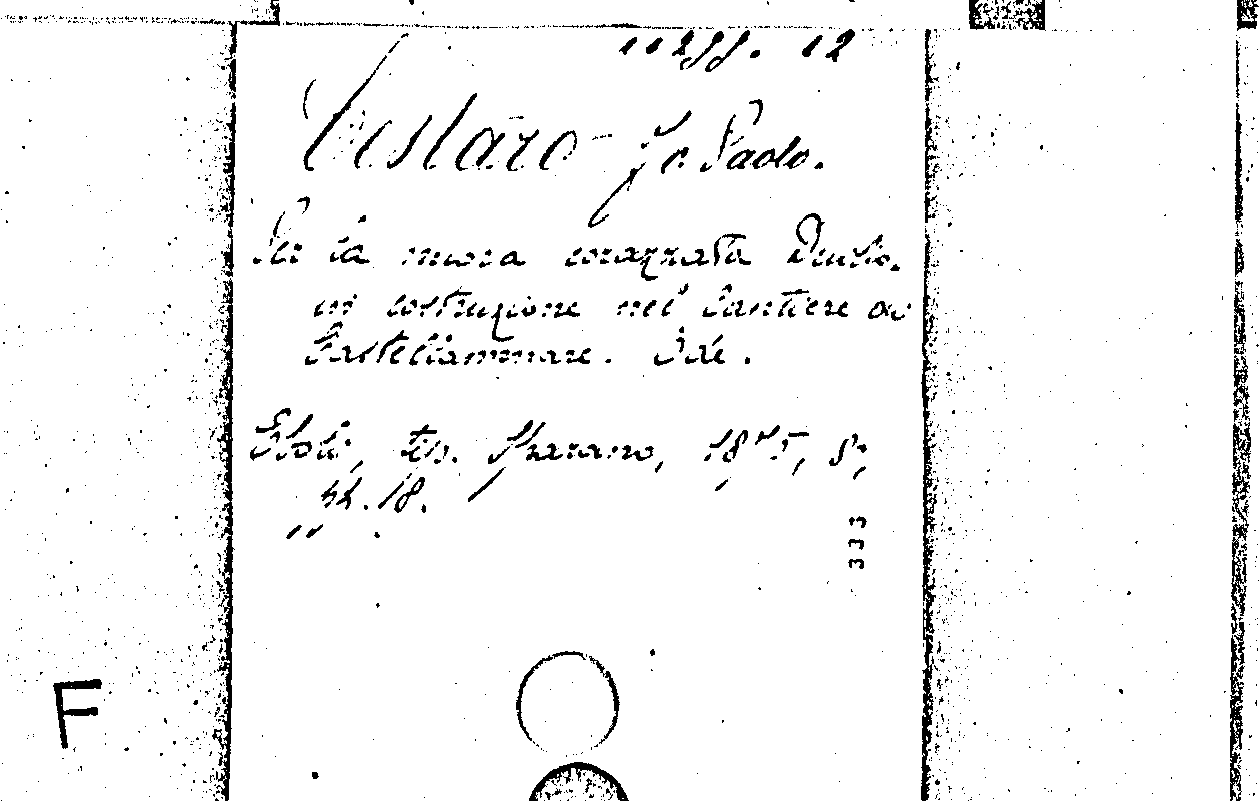 11299. 12
Cestaro Fr. Paolo.
Per la nuova corazzata Duilio.
in costruzione nel Cantiere di
Castellammare. Ode.
Eboli, tip. Sparano, 1875, 8°,
pp. 18.
333
F